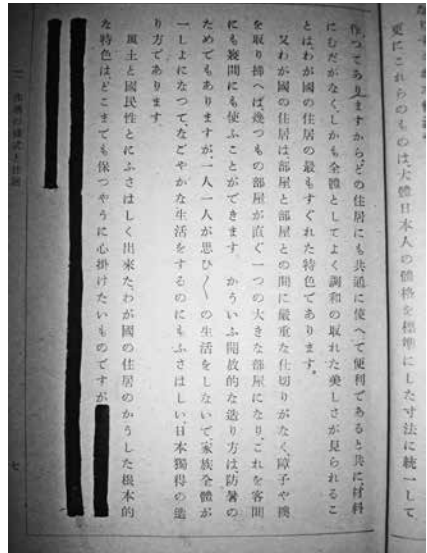 更にこれらのものは、大體日本人の體格を標準にした寸法に統一して
作つてありますから、どの住居にも共通に使へて便利であると共に、材料
にむだがなく、しかも全體としてよく調和の取れた美しさが見られるこ
とはわが國の住居の最もすぐれた特色であります。
又わが國の住居は部屋と部屋との間に嚴重な仕切りがなく、障子や襖
を取り拂へば幾つもの部屋が直ぐ一つの大きな部屋になり、これを客間
にも寢間にも使ふことができます かういふ開放的な造り方は、防暑の
ためでもありますが、一人一人が思ひ〳〵の生活をしないで、家族全體が
一しよになつて、なごやかな生活をするのにもふさはしい、日本獨得の造
り方であります。
風土と國民性とにふさはしく出來た、わが國の住居のかうした根本的
な特色は、どこまでも保つやうに心掛けたいものですが
七